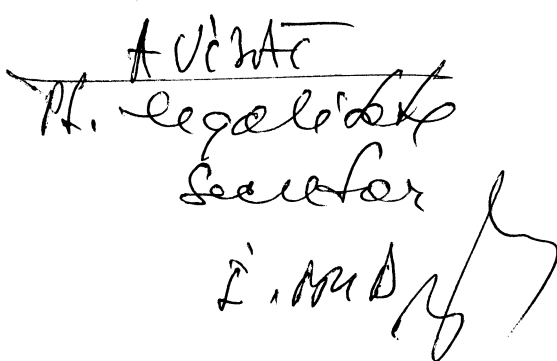 AVIZAT
Pt. legalitate
secretar